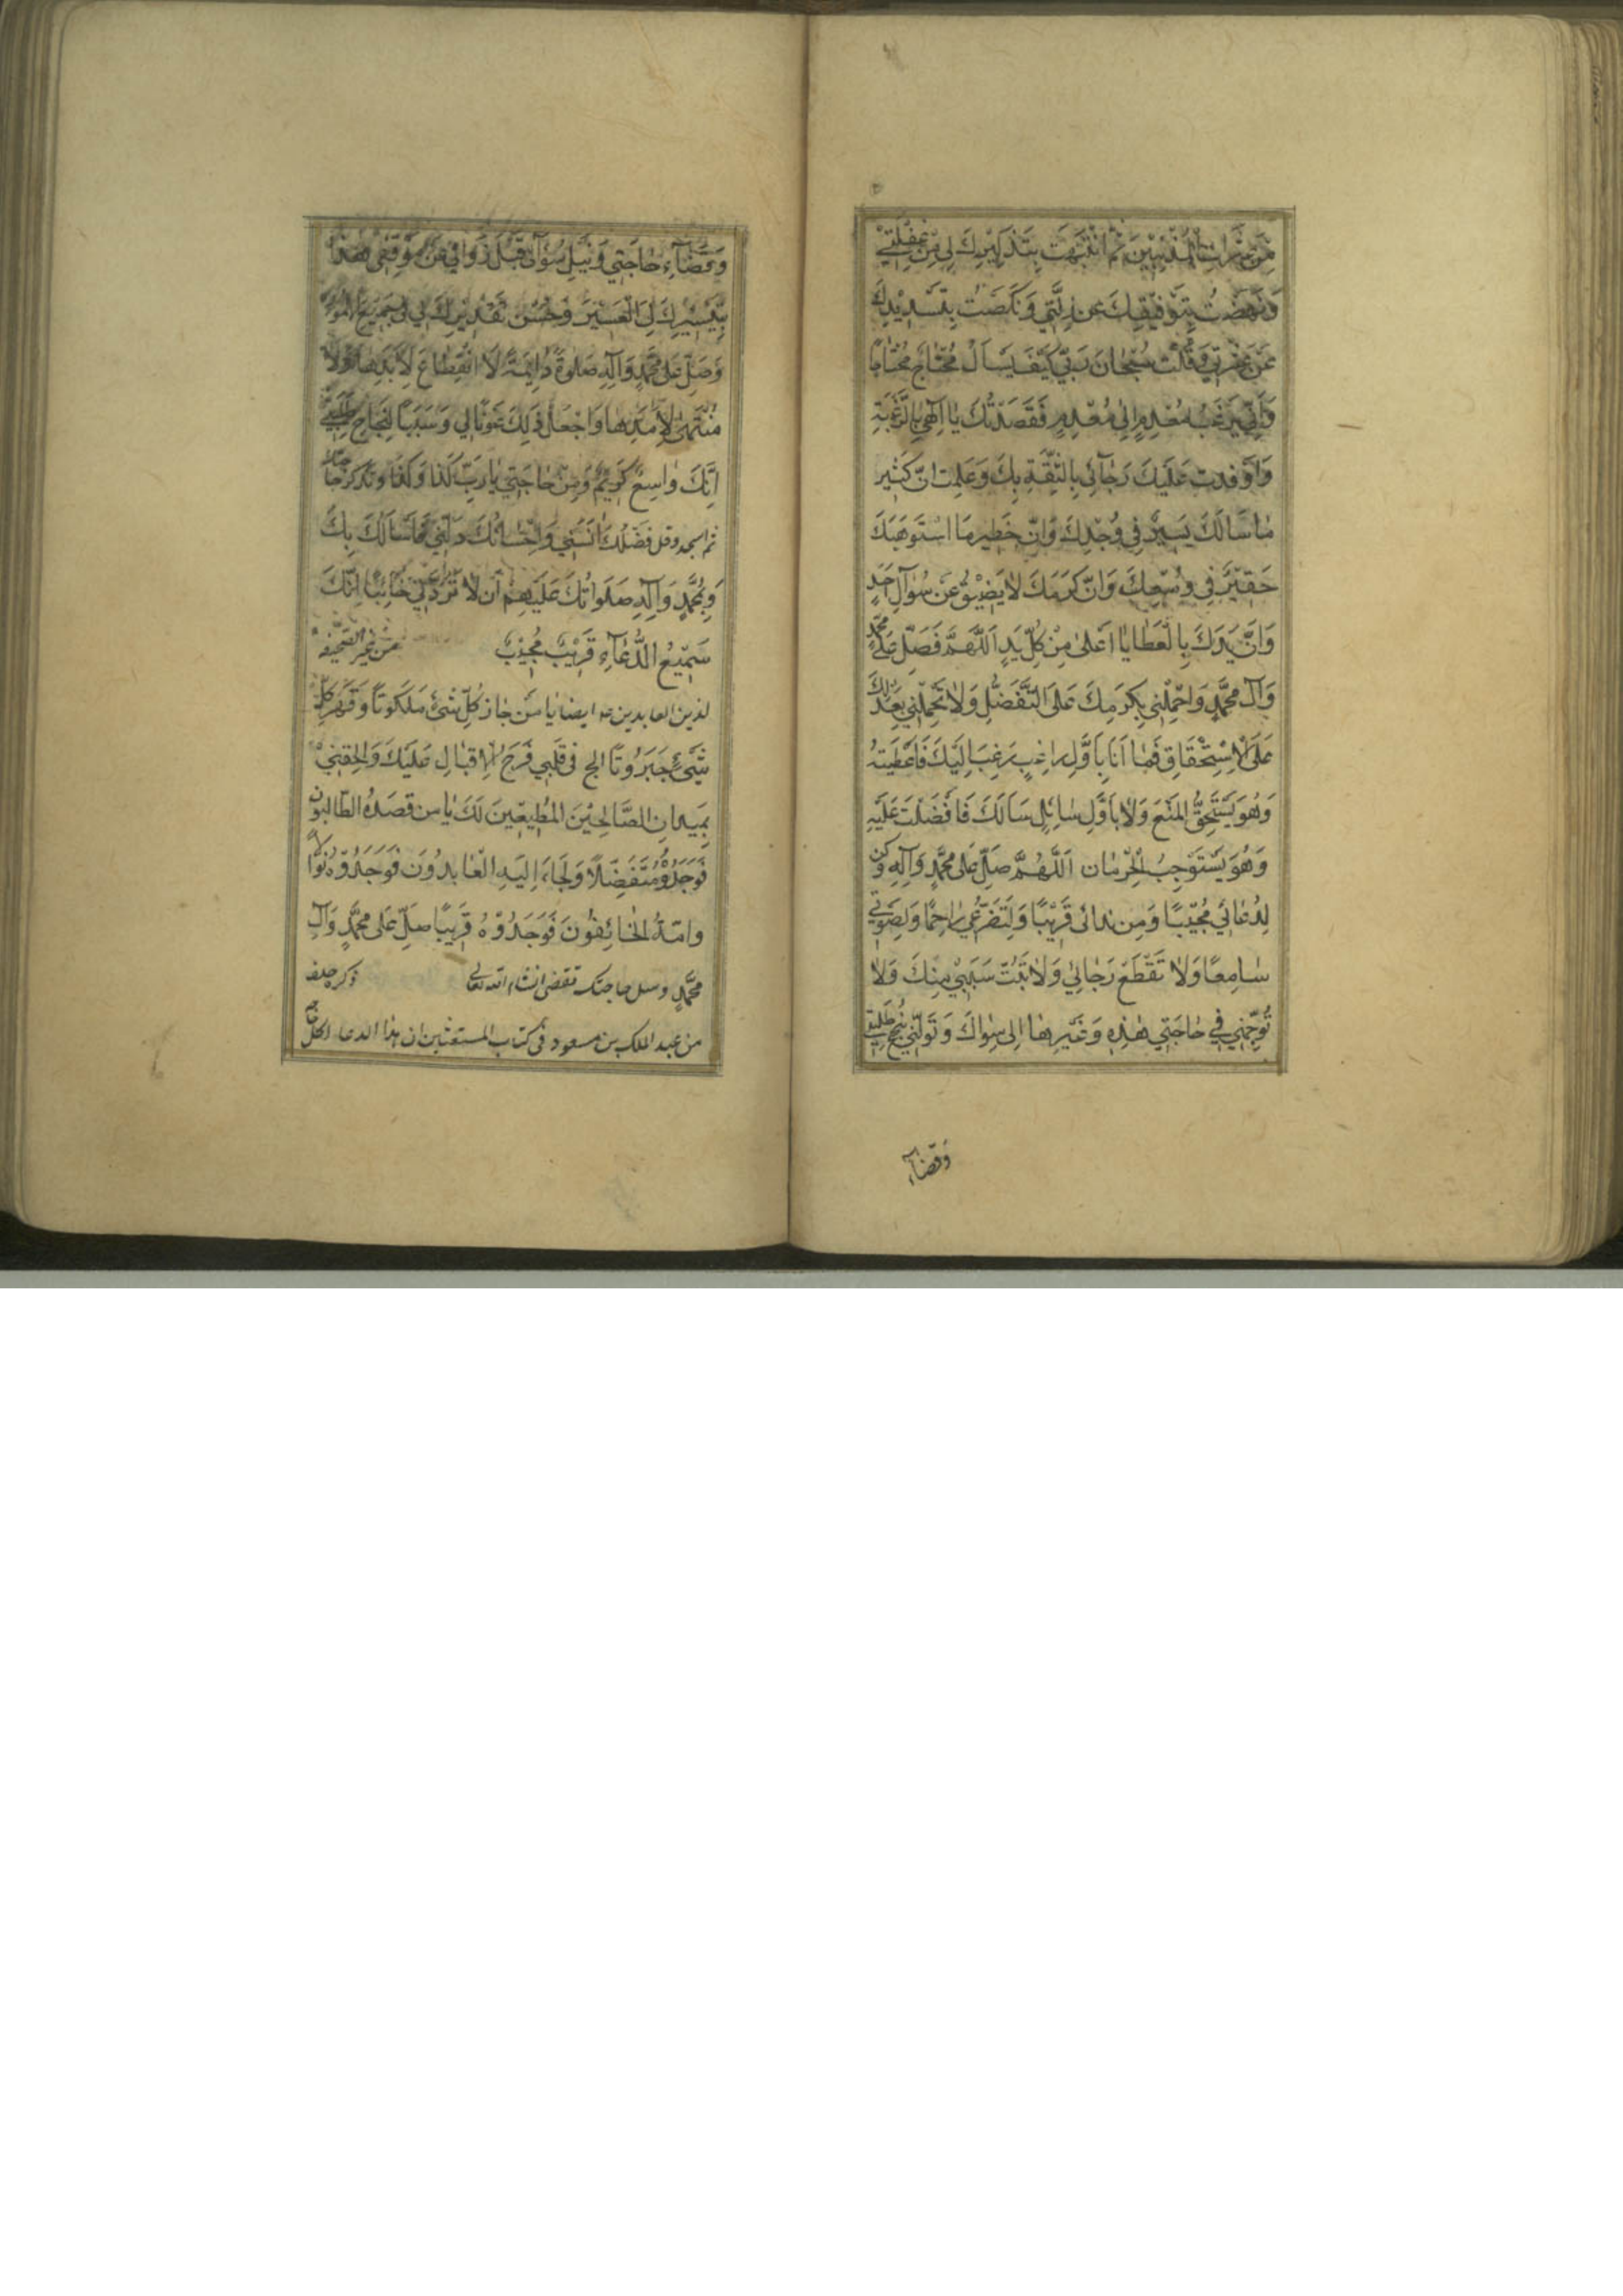 مِنْ عَثَراتِ الْمُذْنِبينَ ثُمَّ انْتَبَهْتُ بِتَذْكيرِكَ لي مِنْ غَفْلَتي
وَنَهَضْتُ بِتَوْفيقِكَ عَن زَلَّتي وَنَكَصْتُ بِتَسْديدِكَ
عَنْ عَثْرَتي وَقُلْتُ سُبْحانَ رَبّي كَيْفَ يَسْأَلُ مُحْتاجٌ مُحْتاجًا
وَاَنّى يَرْغَبُ مُعْدِمٌ اِلى مُعْدِمٍ فَقَصَدْتُكَ يا اِلهي بِالرَّغْبَةِ
وَاَوْفَدْتُ عَلَيْكَ رَجآئي بِالثِّقَةِ بِكَ وَعَلِمْتُ اَنَّ كَثيرَ
ما اَسْأَلُكَ يَسيرٌ في وُجْدِكَ وَاَنَّ خَطيرَ ما اَسْتَوْهِبُكَ
حَقيرٌ في وُسْعِكَ وَاَنَّ كَرَمَكَ لا يَضيقُ عَنْ سُؤالِ اَحَدٍ
وَاَنَّ يَدَكَ بِالْعَطايا اَعْلى مِنْ كُلِّ يَدٍ اَللّهُمَّ فَصَلِّ عَلى مُحَمَّدٍ
وَآلِ مُحَمَّدٍ وَاحْمِلْني بِكَرَمِكَ عَلَى التَّفَضُّلِ وَلا تَحْمِلْني بِعَدْلِكَ
عَلَى الْاِسْتِحْقاقِ فَما اَنَا بِاَوَّلِ راغِبٍ رَغِبَ اِلَيْكَ فَاَعْطَيْتَهُ
وَهُوَ يَسْتَحِقُّ الْمَنْعَ وَلا بِاَوَّلِ سائِلٍ سَأَلَكَ فَاَفْضَلْتَ عَلَيْهِ
وَهُوَ يَسْتَوْجِبُ الْحِرْمان اَللّهُمَّ صَلِّ عَلى مُحَمَّدٍ وَآلِهِ وَكُنْ
لِدُعائي مُجيبًا وَمِن نِدائي قَريبًا وَلِتَضَرُّعي راحِمًا وَلِصَوْتي
سامِعًا وَلا تَقْطَعْ رَجائي وَلا تَبُتَّ سَبَبي مِنْكَ وَلا
تُوَجِّهْني في حاجَتي هذِهِ وَغَيْرِها اِلى سِواكَ وَتَوَلَّني بِنُجْحِ طَلِبَتي
وَقَضآءِ
وَقَضآءِ حاجَتي وَنَيْلِ سُؤْلي قَبْلَ زَوالي عَنْ مَوْقِفي هذا
بِتَيْسيرِكَ لِيَ الْعَسيرَ وَحُسْنِ تَقْديرِكَ لي في جَميعِ الْاُمُورِ
وَصَلِّ عَلى مُحَمَّدٍ وَآلِهِ صَلوةً دائِمَةً لَا انْقِطاعَ لِاَبَدِها وَلا
مُنْتَهى لِاَمَدِها وَاجْعَلْ ذلِكَ عَوْنًا لي وَسَبَبًا لِنَجاحِ طَلِبَتي
اِنَّكَ واسِعٌ كَريمٌ وَمِنْ حاجَتي يا رَبِّ كَذا وَكَذا وتذكر حاجتك
ثم اسجد وقل فَضْلُكَ آنَسَني وَاِحْسانُكَ دَلَّني فَاَسْأَلُكَ بِكَ
وَبِمُحَمَّدٍ وَآلِهِ صَلَواتُكَ عَلَيْهِمْ اَنْ لا تَرُدَّني خائِبًا اِنَّكَ
سَميعُ الدُّعآءِ قَريبٌ مُجيبٌ من غير الصحيفة
لزين العابدين ع ايضا يا مَنْ حازَ كُلَّ شَيْءٍ مَلَكُوتًا وَقَهَرَ كُلَّ
شَيْءٍ جَبَرُوتًا اَلِج في قَلْبي فَرَجَ الْاِقْبالِ عَلَيْكَ وَالْحِقْني
بِمَيْدانِ الصّالِحينَ الْمُطيعينَ لَكَ يا مَن قَصَدَهُ الطّالِبُونَ
فَوَجَدُوهُ مُتَفَضِّلًا وَلَجَأَ اِلَيْهِ الْعابِدُونَ فَوَجَدُوهُ نَوّالًا
وَاَمَّهُ الْخائِفُونَ فَوَجَدُوهُ قَريبًا صَلِّ عَلى مُحَمَّدٍ وَآلِ
مُحَمَّدٍ وسل حاجتك تقضى انشاء الله تعالى ذكره خلف
من عبد الملك بن مسعود في كتاب المستغيثين ان هذا الدعا لكل